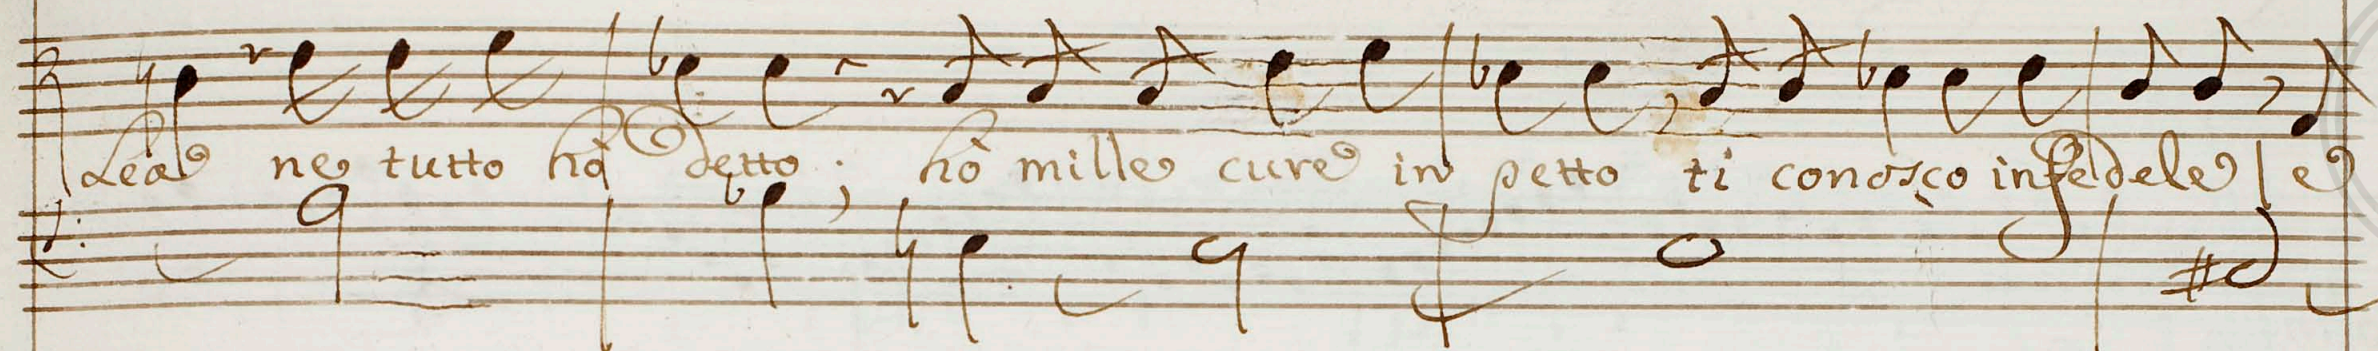 Lea ne tutto hò detto. hò mille cure in petto ti conosco infedele | e